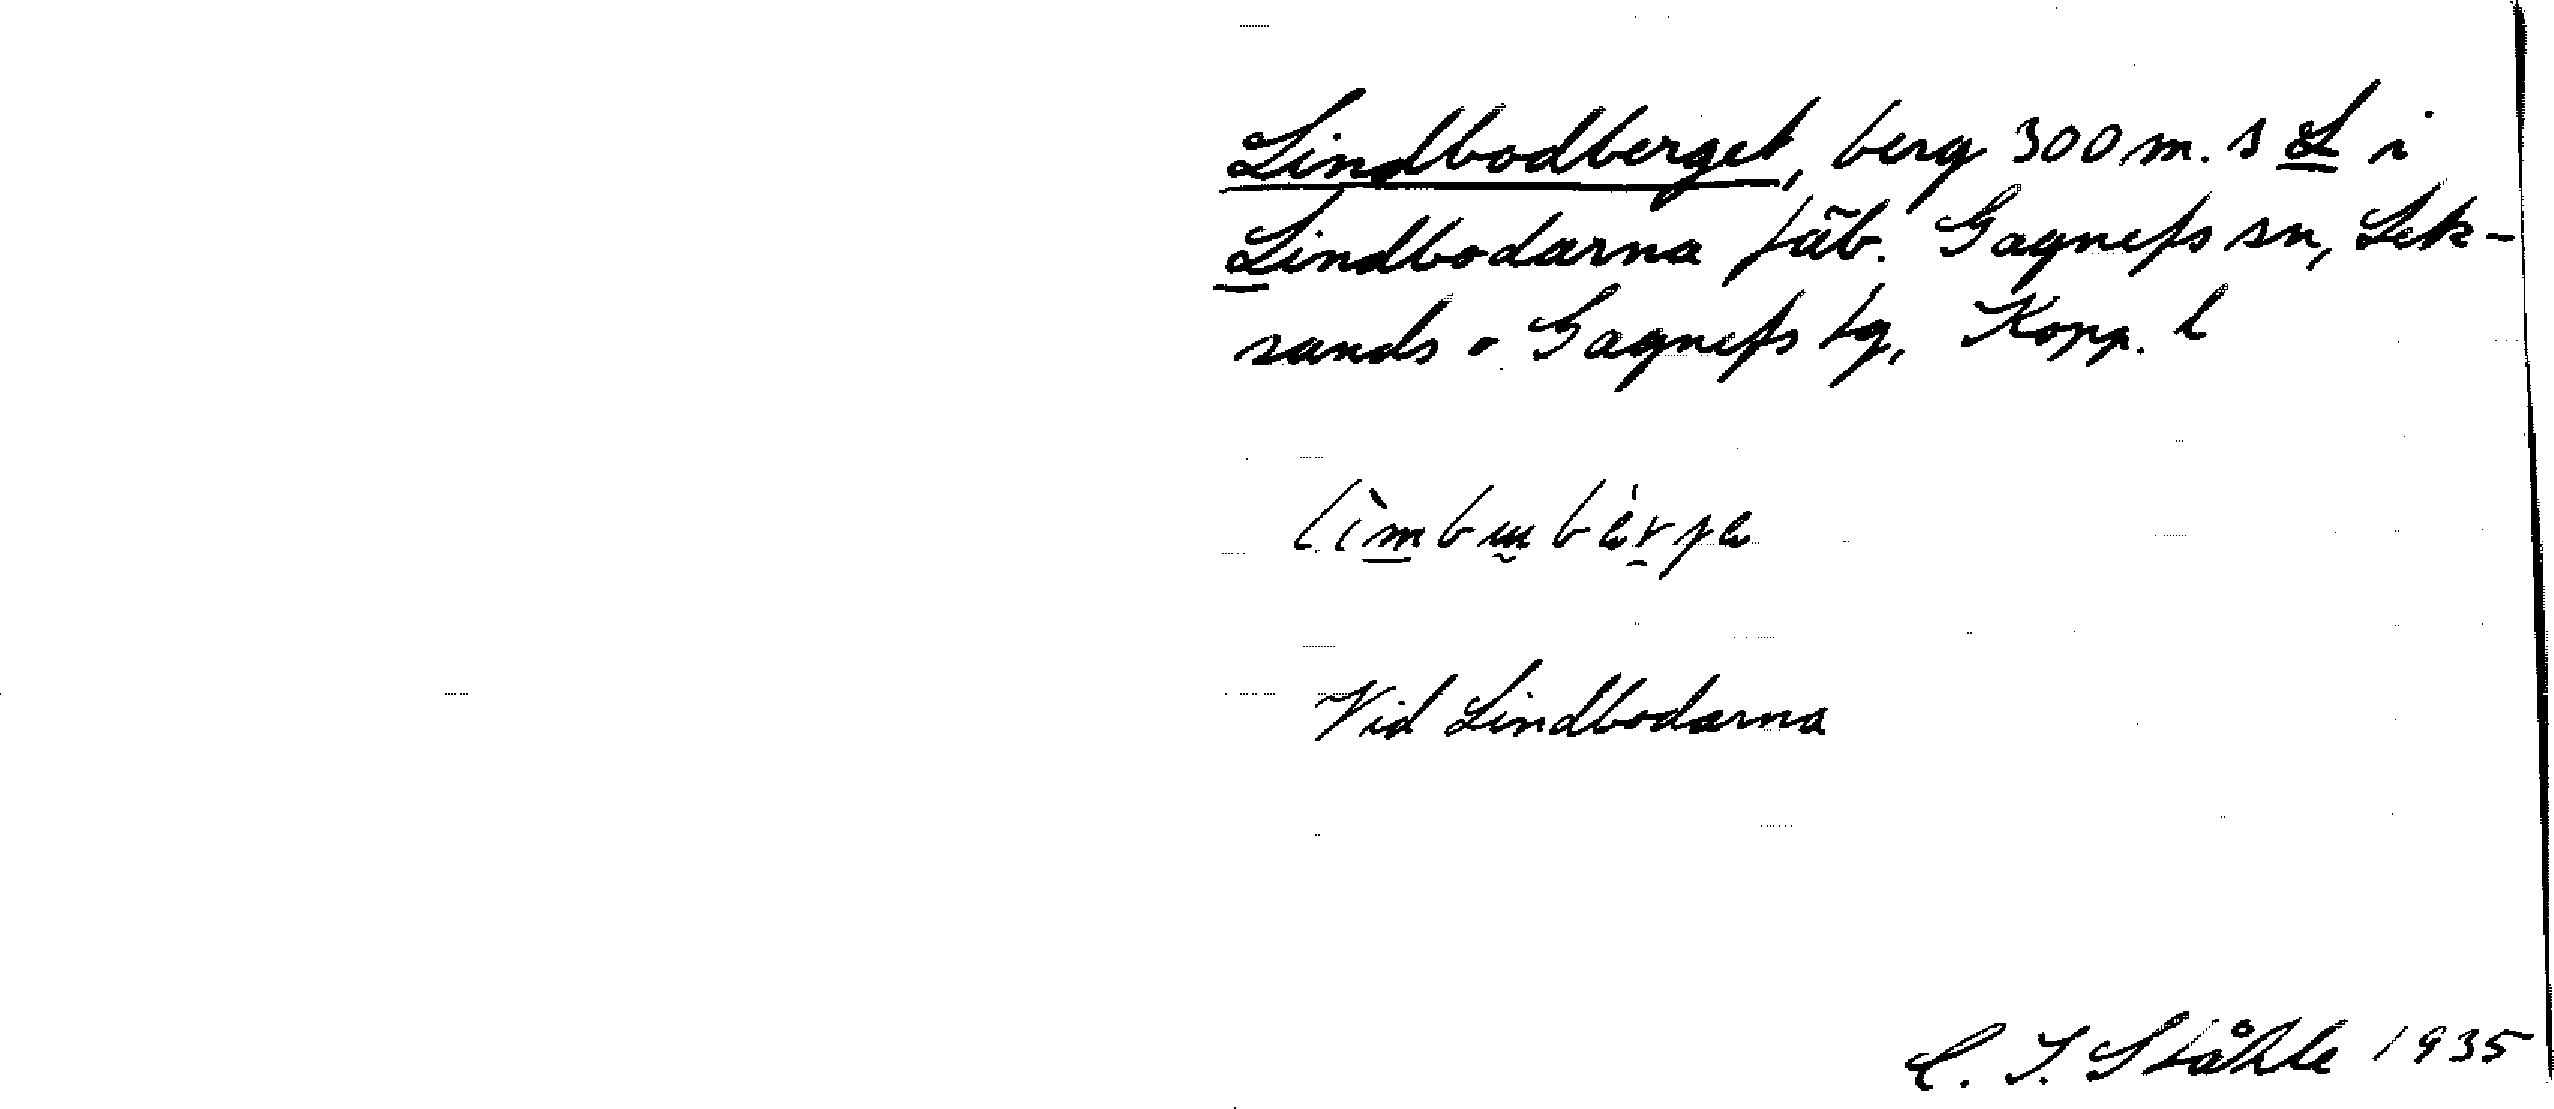 Lindbodberget, berg 300 m. s L i
Lindbodarna fäb. Gagnefs sn, Lek-
sands o Gagnefs tg, Kopp. l
Vid Lindbodarna
C. I. Ståhle 1935